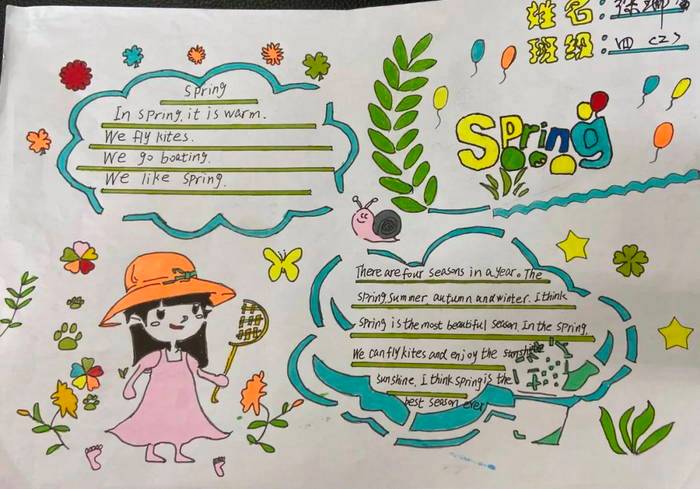 姓名:徐
班级:四(2)
Spring
spring
In spring, it is warm.
We fly kites.
We go boating.
We like spring.
There are four seasons in a year. The
spring, summer, autumn and winter. I think
spring is the most beautiful season. In the spring,
We can fly kites and enjoy the sunshine
sunshine. I think spring is the
best season ever